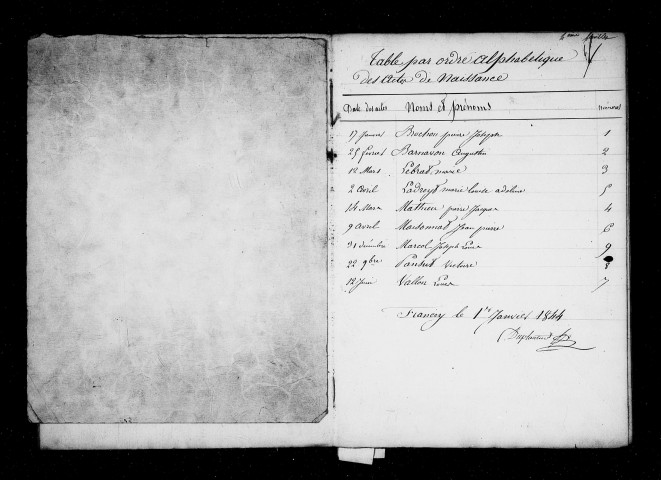 Table par ordre Alphabetique
des Actes de Naissance
Date des actes Noms et prénoms Numéros
17 Janvier Brochon pierre Joseph 1
25 fevrier Barnavon Augustin 2
12 Mars Lebrat marie 3
2 Avril Ladreyt marie louise adeline 5
14 Mars Mathieu pierre Jacques 4
9 avril Maisonnat Jean pierre 6
31 décembre Marcol Joseph Louis 9
22 9bre Victoire 8
12 Juin Vallon Louis 7
le 1er Janvier 1844